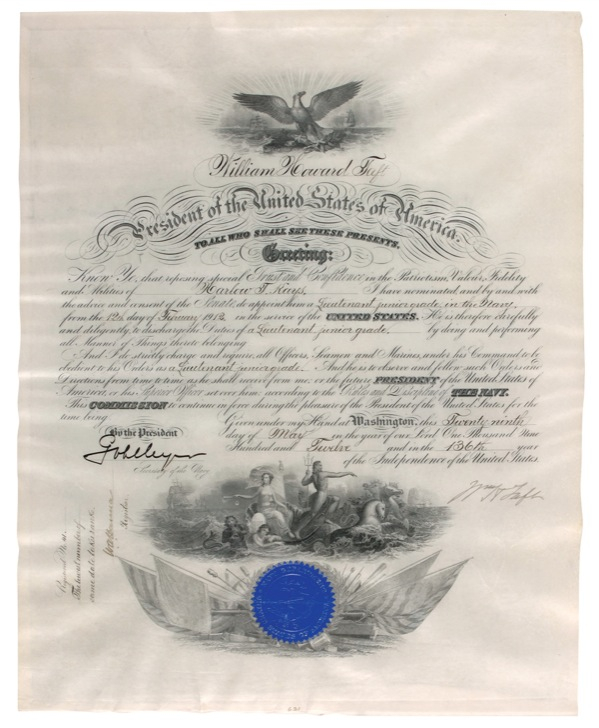 William Howard Taft
President of the United States of America.
TO ALL WHO SHALL SEE THESE PRESENTS,
Greeting:
Know Ye, that reposing special Trust and Confidence in the Patriotism, Valor, Fidelity
and Abilities of Harlow T. Kays I have nominated, and by and with
the advice and consent of the Senate, do appoint him a Lieutenant, junior grade, in the Navy
from the 12th day of 1912 in the service of the UNITED STATES. He is therefore carefully
and diligently to discharge the Duties of a Lieutenant, junior grade, by doing and performing
all Manner of Things thereto belonging
And I do strictly charge and require all Officers, Seamen and Marines, under his Command to be
obedient to his Orders as a Lieutenant, junior grade. And he is to observe and follow such Orders and
Directions from time to time as he shall receive from me, or the future PRESIDENT of the United States of
America, or his Superior Officer set over him, according to the Rules and Discipline of THE NAVY.
This COMMISSION to continue in force during the pleasure of the President of the United States for the
time being
Given under my Hand at Washington, this Twenty ninth
day of May in the year of our Lord One Thousand Nine
Hundred and Twelve and in the 136th year
of the Independence of the United States.
By the President
GvLMeyer
Secretary of the Navy
Wm H Taft
Registered No.
number of
same date take rank
Register